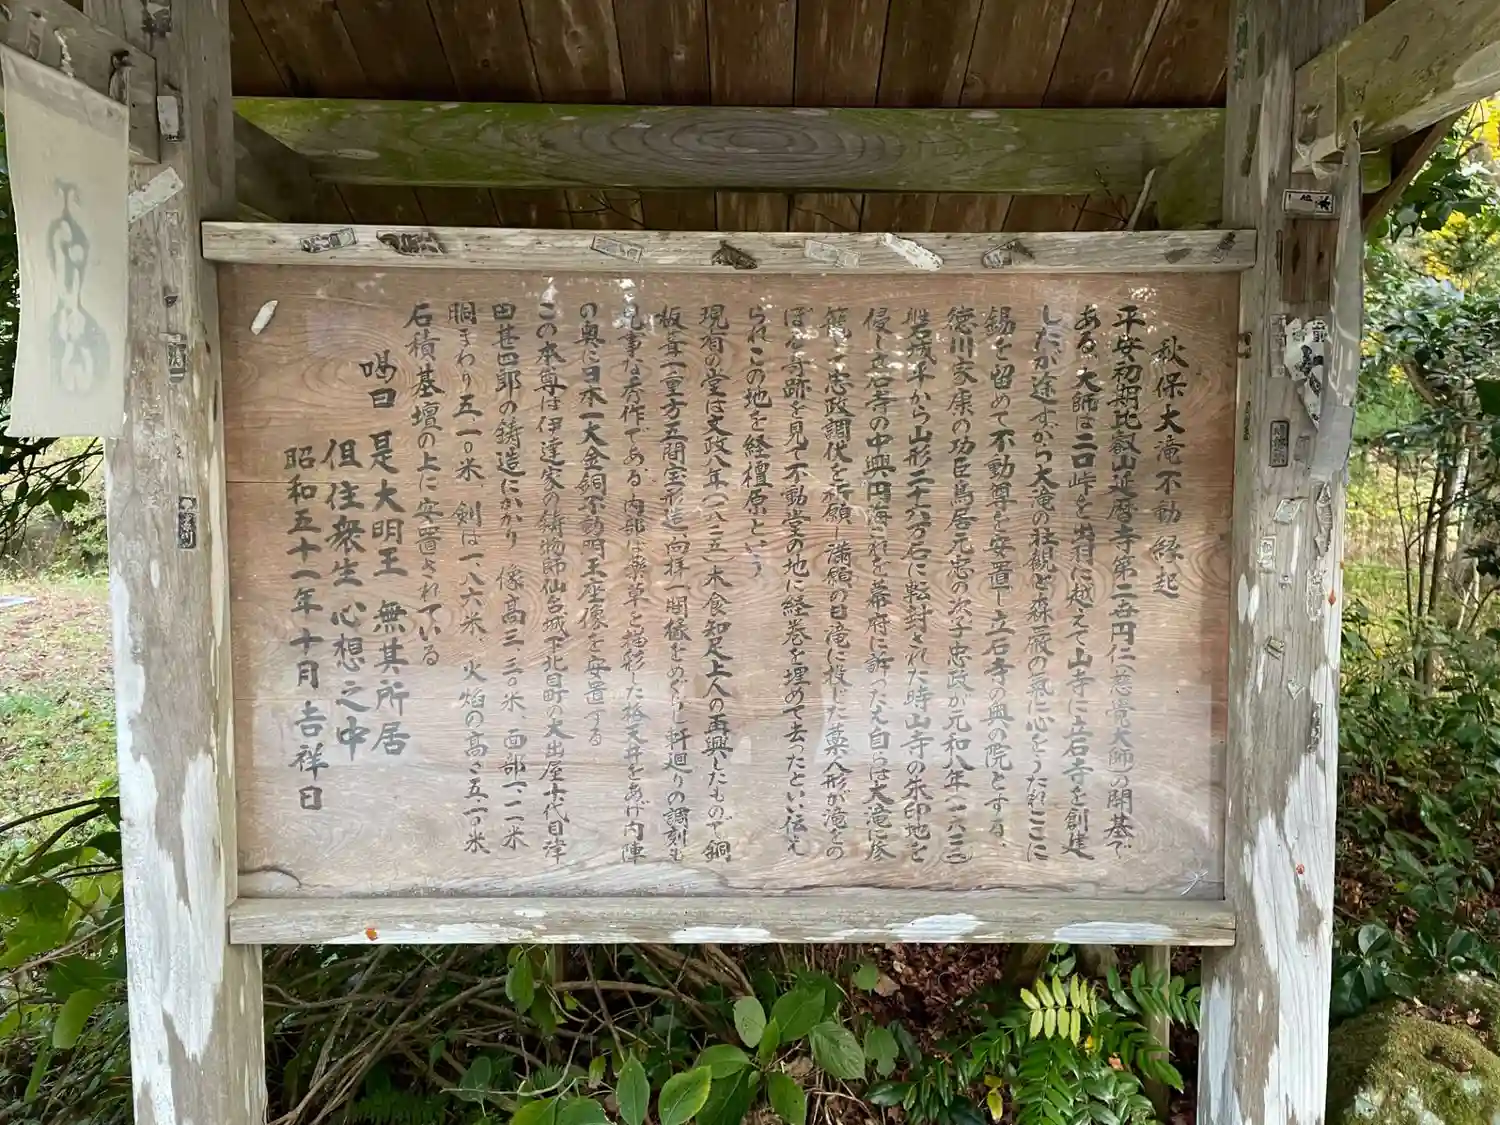 秋保大滝不動縁起
平安初期比叡山延暦寺第二五円仁(慈覚大師)の開基で
ある、大師は二口峠を出羽に越えて山寺に立石寺を創建
したが途すがら大滝の壮観と森厳の氣に心をうたれここに
錫を留めて不動尊を安置し立石寺の奥の院とする、
徳川家康の功臣鳥居元忠の次子忠政が元和八年(一六二二)
磐城平から山形二十六万石に転封された時山寺の朱印地を
侵し立石寺の中興円海これを幕府に訴ったえ自らは大滝に参
籠して忠政調伏を祈願し満願の日滝に投じた藁人形が滝をの
ぼる寺跡を見て不動堂の地に経巻を埋めて去ったといい伝え
られこの地を経檀原という
現有の堂は文政八年(一八二五)木食知足上人の再興したもので銅
板葺一重方五間宝形造、向拝一間椽をめぐらし軒廻りの調刻も
見事な秀作である、内部は薬草を描形した格天井をあげ内陣
の奥に日本一大金銅不動明王座像を安置する
この本尊は伊達家の鋳物師仙台城下北目町の大出屋十代目津
田甚四郎の鋳造にかかり 像高三、三〇米、面部一、二一米
胴まわり五一〇米 剣は一、八六米、火焰の高さ五、一〇米
石積基壇の上に安置されている
偈曰 是大明王 無其所居
但住衆生心想之中
昭和五十一年十月吉祥日